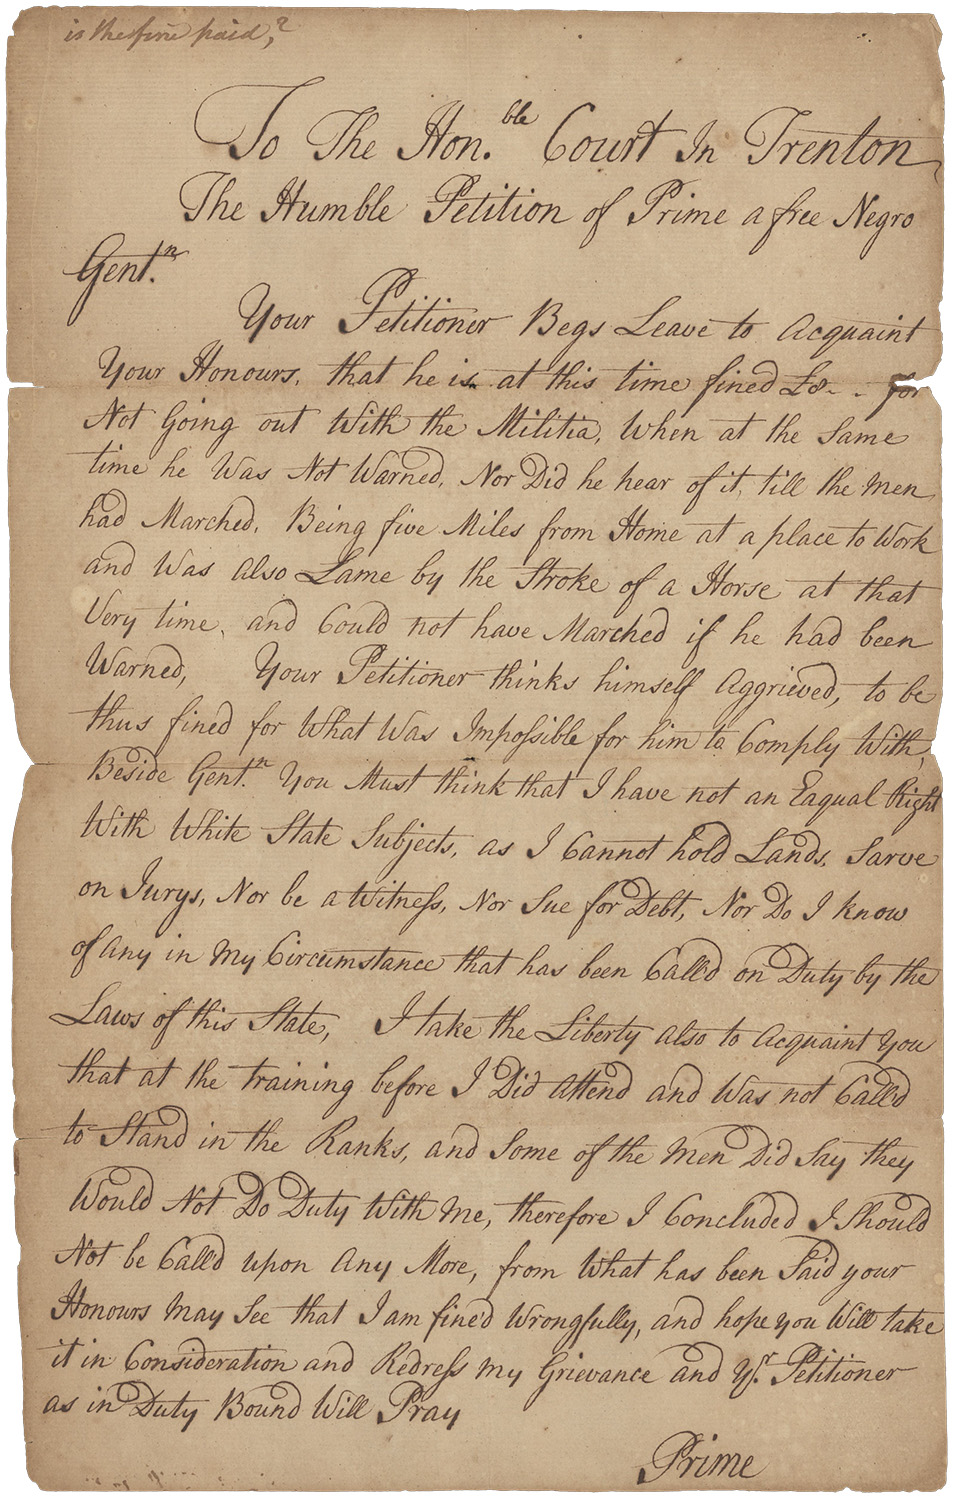 is the fine paid,?
To The Hon.ble Court In Trenton
The Humble Petition of Prime a free Negro
Gent.n
Your Petitioner Begs Leave to Acquaint
Your Honours, that he is at this time fined £8-- for
Not Going out With the Militia, When at the Same
time he Was Not Warned, Nor Did he hear of it, till the Men
had Marched, Being five Miles from Home at a place to Work
and Was also Lame by the Stroke of a Horse at that
Very time, and Could not have Marched if he had been
Warned, Your Petitioner thinks himself Aggrieved, to be
thus fined for What Was Impossible for him to Comply With,
Beside Gent.n You Must think that I have not an Eaqual Right
With White State Subjects, as I Cannot hold Lands, Sarve
on Jurys, Nor be a Witness, Nor Sue for Debt, Nor Do I know
of any in My Circumstance that has been Call'd on Duty by the
Laws of this State, I take the Liberty also to Acquaint You
that at the training before I Did Attend and Was not Call'd
to Stand in the Ranks, and Some of the Men Did Say they
Would Not Do Duty With Me, therefore I Concluded I Should
Not be Call'd upon Any More, from What has been Said your
Honours May See that I am fine'd Wrongfully, and hope you Will take
it in Consideration and Redress My Grievance and Y.r Petitioner
as in Duty Bound Will Pray
Prime